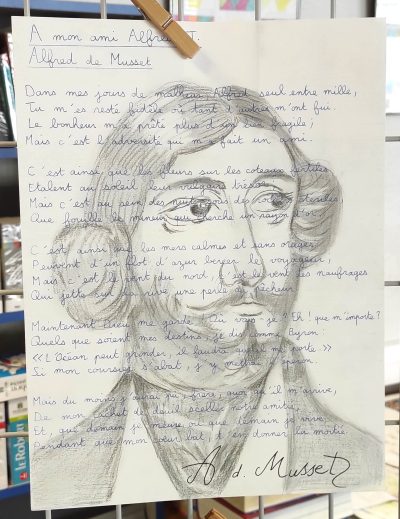 A mon ami Alfred T.
Alfred de Musset
Dans mes jours de malheur, Alfred seul entre mille,
Tu m'es resté fidèle où tant d'autres m'ont fui.
Le bonheur m'a prêté plus d'un lien fragile;
Mais c'est l'adversité qui m'a fait un ami.
C'est ainsi que les fleurs sur les coteaux fertiles
Etalent au soleil leur vulgaire trésor
Mais c'est au sein des nuits, sous des rochers stériles,
Que fouille le mineur qui cherche un rayon d'or.
C'est ainsi que les mers calmes et sans orages
Peuvent d'un flot d'azur bercer le voyageur,
Mais c'est le vent du nord, c'est le vent des naufrages
Qui jette sur sa rive une perle au pêcheur.
Maintenant Dieu me garde! Où vais-je? Eh! que m'importe?
Quels que soient mes destins, je dis comme Byron:
«L'Océan peut gronder, il faudra qu'il me porte.»
Si mon coursier s'abat, j'y mettrai l'éperon.
Mais du moins j'aurai pu, frère, quoi qu'il m'arrive,
De mon cachet de deuil sceller notre amitié,
Et, que demain je meure ou que demain je vive,
Pendant que mon coeur bat, t'en donner la moitié.
A. d. Musset
le Robert